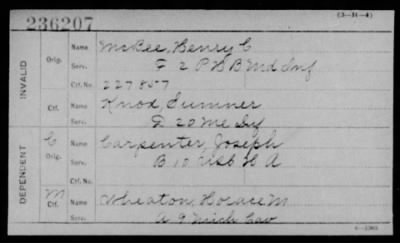 236207
(3-H-4)
INVALID
Orig. Name McKee, Henry C
Serv. F 2 P H B Md Inf
Ctf. No. 227857
Ctf. Name Knox, Sumner
Serv. D 20 Me Inf
DEPENDENT
C Orig. Name Carpenter, Joseph
Serv. B 10 H A
Ctf. No.
M Ctf. Name Wheaton, Horace M
Serv. A 9 Mich Cav